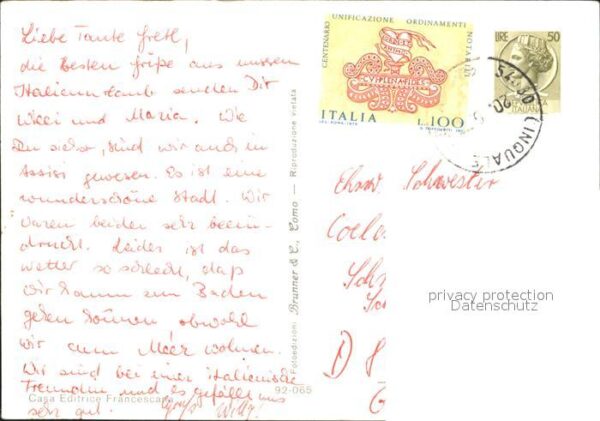 Liebe Tante Gretl,
die besten Grüße aus unserem
Italienurlaub senden Dir
Willi und Maria. Wie
Du siehst, sind wir auch in
Assisi gewesen. Es ist eine
wunderschöne Stadt. Wir
waren beide sehr beein-
druckt. Leider ist das
Wetter so schlecht, daß
wir kaum zum Baden
gehen können obwohl
wir am Meer wohnen.
Wir sind bei einer italienische
Freundin und es gefällt uns
sehr gut.
Casa Editrice Francescana
92-065
Fotoedizioni Brunner & C., Como — Riproduzione vietata
CENTENARIO UNIFICAZIONE ORDINAMENTI NOTARILI
ITALIA L.100
LIRE 50
ITALIANA
LINGUALE
Ehrw. Schwester
D 8
privacy protection
Datenschutz